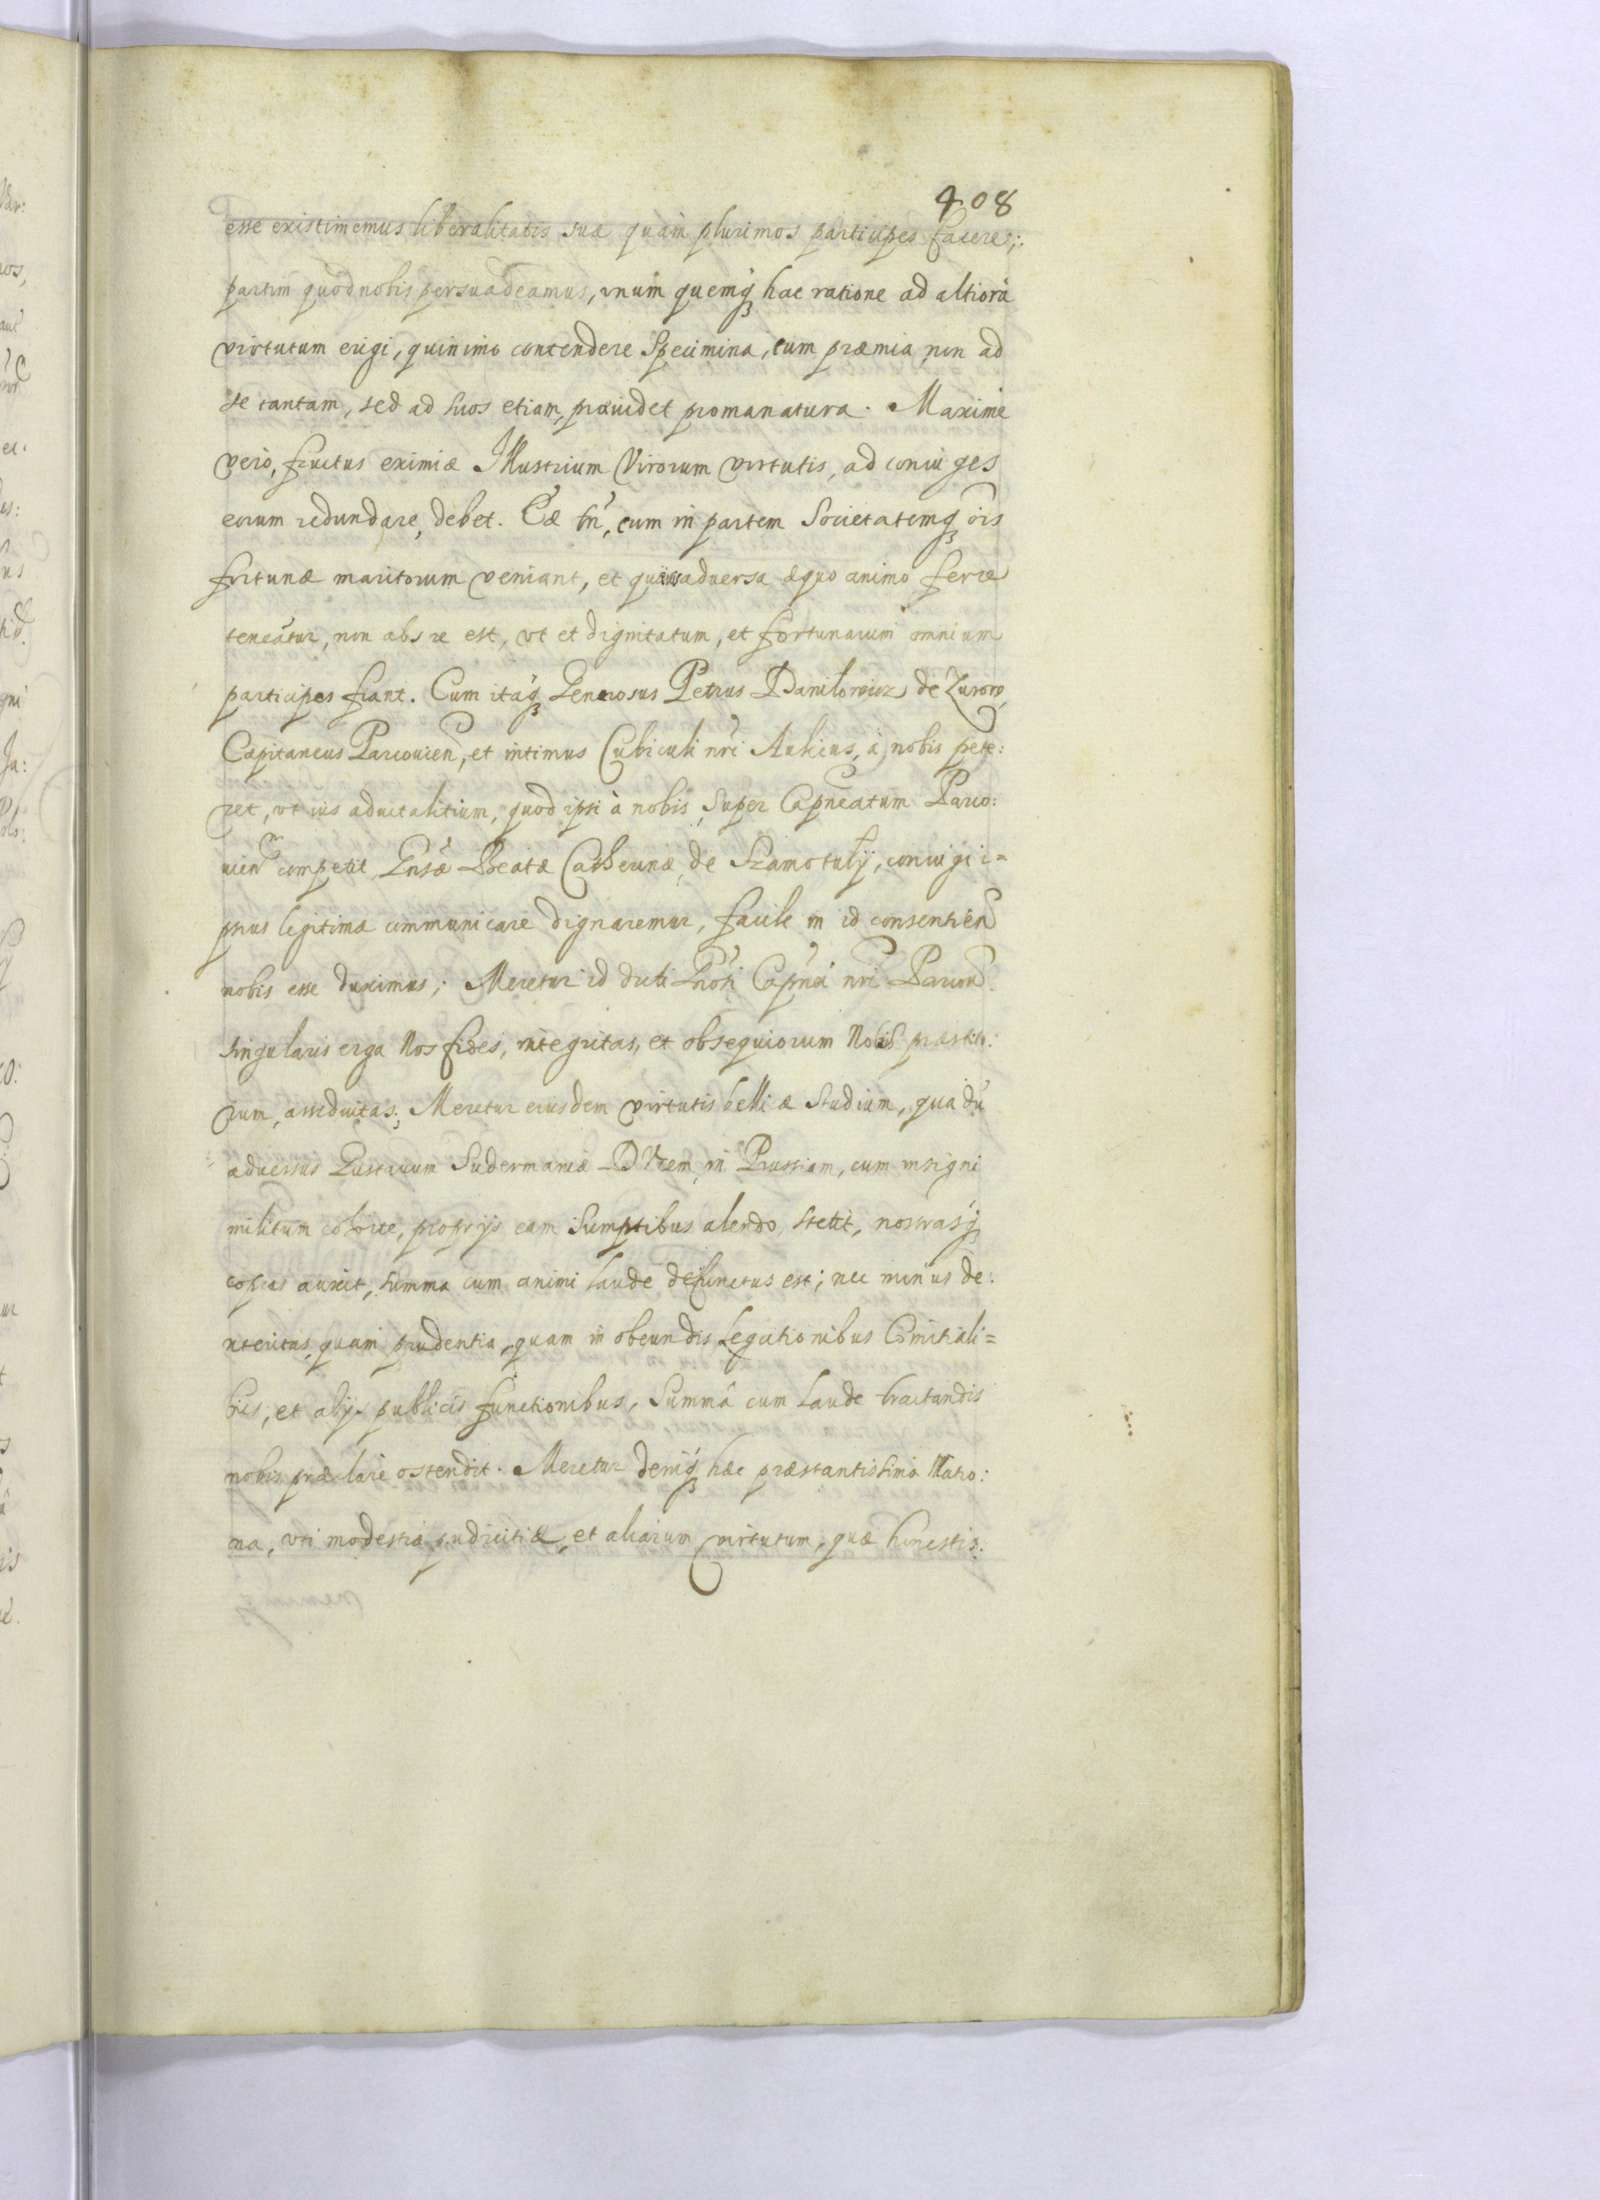 408
esse existimemus liberalitatis suæ quàm plurimos participes facere;
partim quod nobis persuadeamus, vnum quemq hac ratione ad altiora
virtutum erigi, quinimo contendere Specimina, cum præmia non ad
se tantam, sed ad suos etiam, prævidet promanatura. Maxime
vero, fructus eximiæ Illustrium Virorum virtutis, ad coniuges
eorum redundare, debet. Eæ tn, cum in partem Societatemq ois
fortunæ maritorum veniant, et adversa æquo animo ferre
teneatur, non abs re est, vt et dignitatum, et fortunarum omnium
participes fiant. Cum itaq Generosus Petrus Daniłowicz de Zurow,
Capitaneus Parcouien, et intimus Cubiculi nri Aulicus, à nobis pete:
ret, vt ius aduitalitium, quod ipsi à nobis, Super Capneatum Parco:
uien competit Gnsæ Beatæ Catherinæ de Szamotuly, coniugi i=
psius legitimæ communicare dignaremur, facile in id consentien
nobis esse duximus; Meretur id dicti Gnosi Capnei nri Parcouien
singularis erga Nos fides, integritas, et obsequiorum Nobis præstito:
rum, assiduitas; Meretur eiusdem virtutis bellicæ Studium, qua du
adversus Gustauum Sudermaniæ DVcem, in Prussiam, cum insigni
militum cohorte, proprijs eam Sumptibus alendo, stetit, nostrasq
copias auxit, summa cum animi laude defunctus est; nec minus de:
xteritas, quam prudentia, quam in obeundis Legationibus Comitiali=
bus, et alijs publicis functionibus, Summâ cum laude tractandis
nobis præclare ostendit. Meretur deniq hæc præstantissima Matro:
na, vti modestiæ pudicitiæ, et aliarum virtutum, quæ honestis: